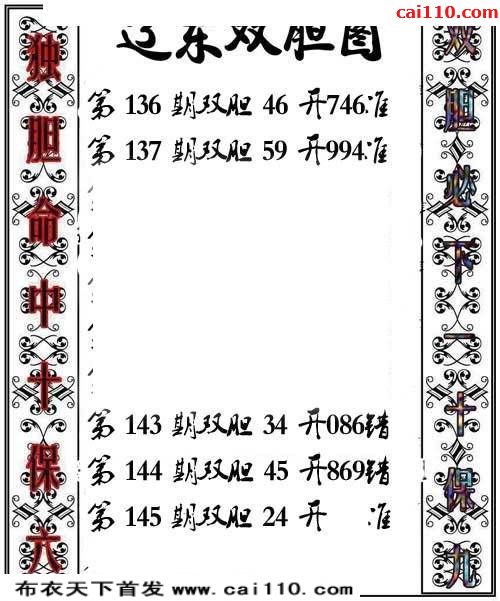 cai110.com
辽东双胆图
独胆命中十保六
第 136 期双胆 46 开746准
第 137 期双胆 59 开994准
第 143 期双胆 34 开086错
第 144 期双胆 45 开869错
第 145 期双胆 24 开 准
双胆必下一十保九
布衣天下首发 www.cai110.com